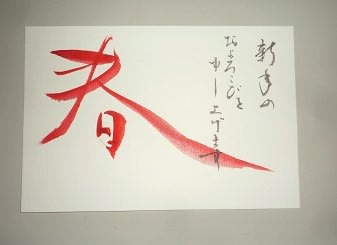 新年の
およろこびを
申し上げます
春